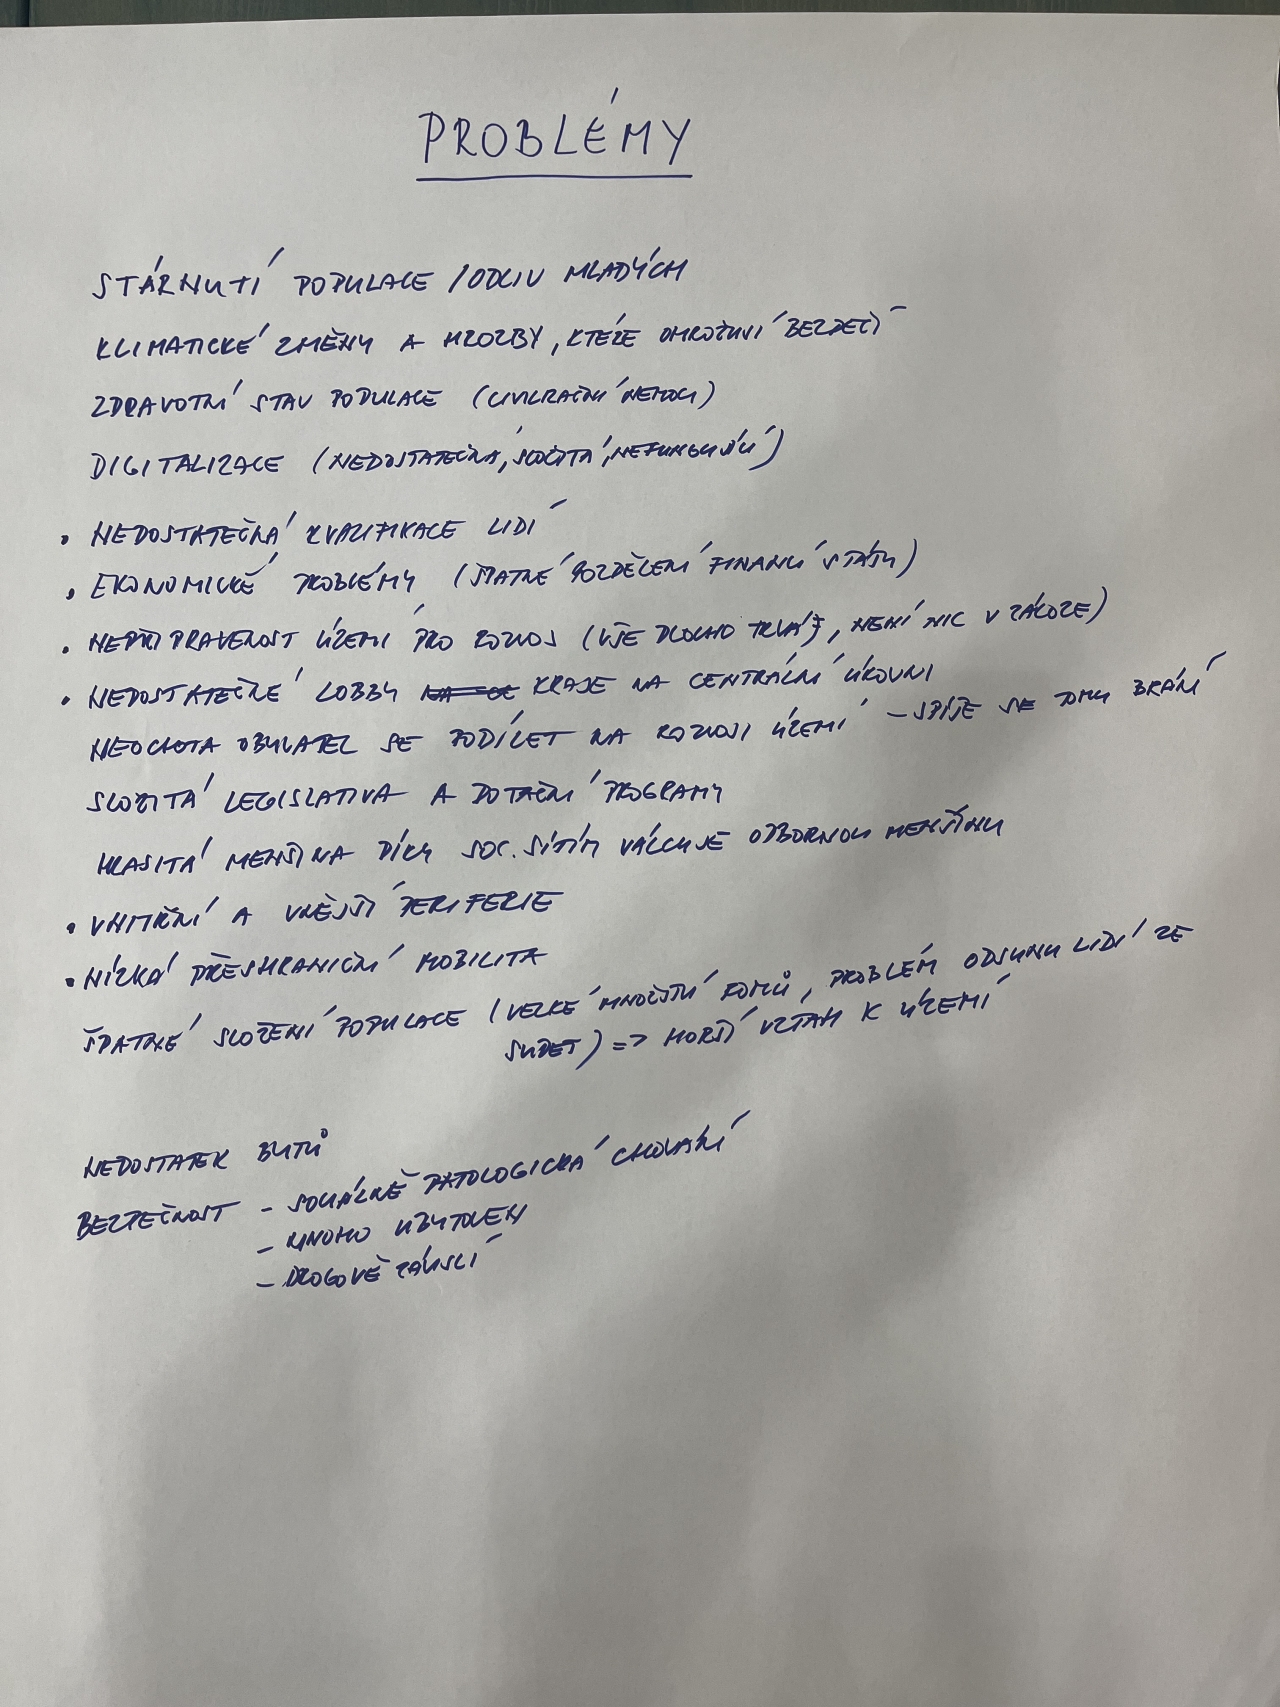 PROBLÉMY
STÁRNUTÍ POPULACE / ODLIV MLADÝCH
KLIMATICKÉ ZMĚNY A HROZBY, KTERÉ OHROŽUJÍ BEZPEČÍ
ZDRAVOTNÍ STAV POPULACE (CIVILIZAČNÍ NEMOCI)
DIGITALIZACE (NEDOSTATEČNÁ, SLOŽITÁ, NEFUNGUJÍCÍ)
• NEDOSTATEČNÁ KVALIFIKACE LIDÍ
• EKONOMICKÉ PROBLÉMY (ŠPATNÉ ROZDĚLENÍ FINANCÍ STÁTU)
• NEPŘIPRAVENOST ÚZEMÍ PRO ROZVOJ (VŠE DLOUHO TRVÁ, NENÍ NIC V ZÁLOZE)
• NEDOSTATEČNÉ LOBBY KRAJE NA CENTRÁLNÍ ÚROVNI
NEOCHOTA OBYVATEL SE PODÍLET NA ROZVOJI ÚZEMÍ – SPÍŠE SE TOMU BRÁNÍ
SLOŽITÁ LEGISLATIVA A DOTAČNÍ PROGRAMY
HLASITÁ MENŠINA DÍKY SOC. SÍTÍM VÁLCUJE ODBORNOU MENŠINU
• VNITŘNÍ A VNĚJŠÍ PERIFERIE
• NÍZKÁ PŘESHRANIČNÍ MOBILITA
ŠPATNÉ SLOŽENÍ POPULACE (VELKÉ MNOŽSTVÍ ROMŮ, PROBLÉM ODSUNU LIDÍ ZE
SUDET) => HORŠÍ VZTAH K ÚZEMÍ
NEDOSTATEK BYTŮ
BEZPEČNOST – SOCIÁLNĚ PATOLOGICKÁ CHOVÁNÍ
– MNOHO UBYTOVEN
– DROGOVĚ ZÁVISLÍ